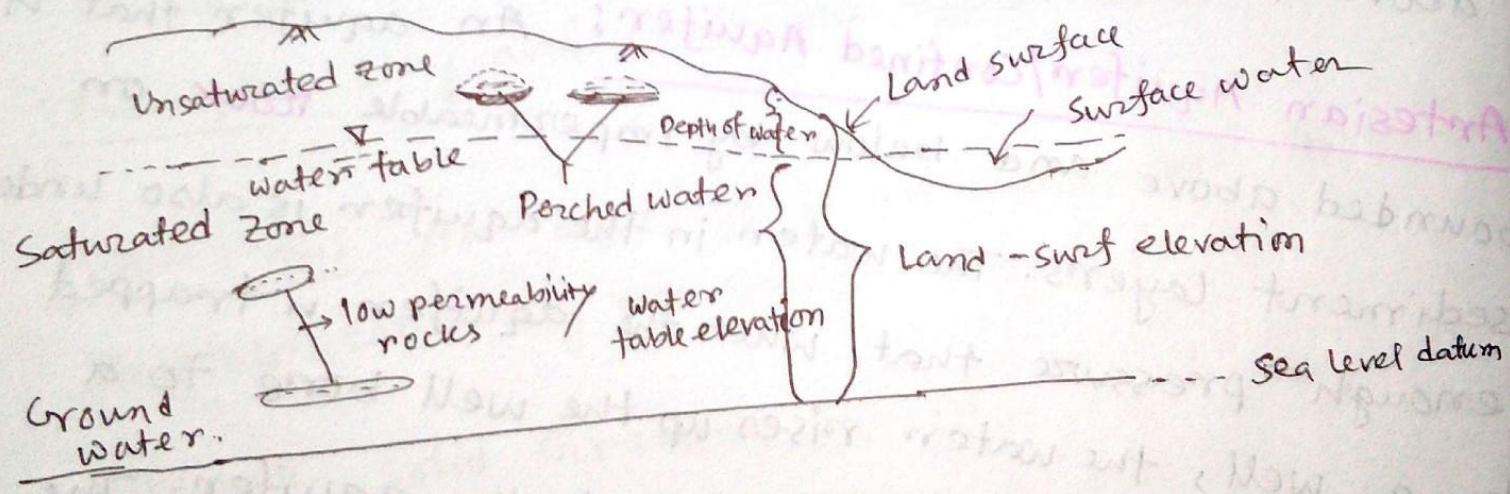 Land surface
Surface water
Unsaturated zone
Depth of water
water table
Perched water
Saturated Zone
Land - surf elevation
low permeability
rocks
water
table elevation
Sea level datum
Ground
water.